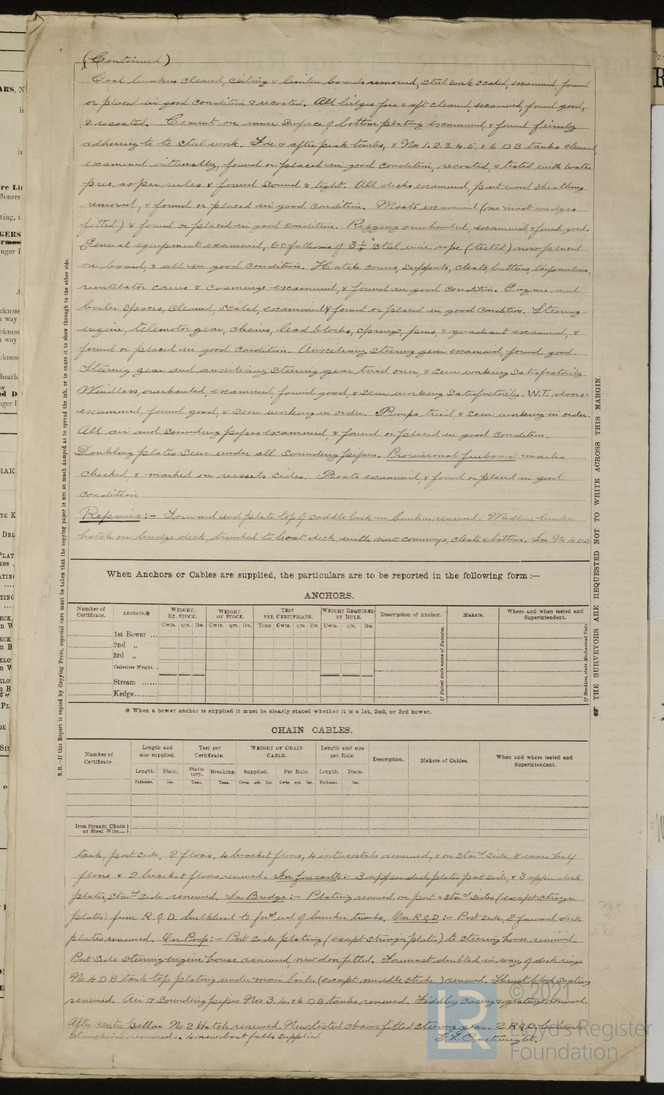 (Continued)
Coal bunkers cleaned, ceiling & limber boards removed, steel work scaled, examined found
or placed in good condition & recoated. All bilges fore & aft cleaned, examined, found good,
& recoated. Cement on inner surface of bottom plating examined, & found firmly
adhering to to steel work. Fore & after peak tanks, & Nos 1. 2. 3. 4. 5. & 6 D B tanks cleaned
examined internally, found or placed in good condition, recoated, & tested with water
pres, as per rules & found sound & tight. All decks examined, part wood sheathing
removed, & found or placed in good condition. Masts examined (new mast wedges
fitted) & found or placed in good condition. Rigging overhauled, examined & found good.
General equipment examined, 60 fathoms of 3½" steel wire rope (tested) now placed
on board, & all in good condition. Hatch covers, supports, cleats, battens, tarpaulins,
ventilator cowls & coamings examined, & found in good condition. Engine and
boiler spaces, cleaned, scaled, examined & found or placed in good condition. Steering
engine, telemotor gear, chains, lead blocks, springs, pins, & quadrant examined, &
found or placed in good condition. Auxiliary steering gear examined, found good.
Steering gear and auxiliary steering gear tried over, & seen working satisfactorily.
Windlass, overhauled, examined found good, & seen working satisfactorily. W.T. doors
examined, found good, & seen working in order. Pumps tried & seen working in order.
All air and sounding pipes examined, & found or placed in good condition.
Doubling plates seen under all sounding pipes. Provisional freeboard marks
checked, & marked on vessels sides. Boats examined, & found or placed in good
condition
Repairs:- Forward end plate top of saddle back in bunker renewed. bunker
hatch on bridge deck, trunked to boat deck with new coamings, cleats & battens. In No 4 DB
When Anchors or Cables are supplied, the particulars are to be reported in the following form :—
ANCHORS.
Number of Certificate. Anchors.* WEIGHT, EX. STOCK. WEIGHT OF STOCK. TEST PER CERTIFICATE. WEIGHT REQUIRED BY RULE. Description of Anchor. Makers. Where and when tested and Superintendent.
Cwts. qrs. lbs. Cwts. qrs. lbs. Tons Cwts. qrs. lbs. Cwts. qrs. lbs.
1st Bower ...
2nd „
3rd „
Collective Weight
Stream
Kedge
* When a bower anchor is supplied it must be clearly stated whether it is a 1st, 2nd, or 3rd bower.
CHAIN CABLES.
Number of Certificate. Length and size supplied. Test per Certificate. WEIGHT OF CHAIN CABLE. Length and size per Rule. Description. Makers of Cables. When and where tested and Superintendent.
Length. Diam. Statutory. Breaking. Supplied. Per Rule. Length. Diam.
Fathoms. Ins. Tons. Tons. Cwts. qrs. lbs. Cwts. qrs. lbs. Fathoms. Ins.
Iron Stream Chain or Steel Wire
tank, port side, 2 floors, 4 bracket floors, 4 intercostals renewed, & on starbd side, 2 inner half
floors & 2 bracket floors renewed. In forecastle:- 3 upper deck plates port side, & 3 upper deck
plates, starbd side renewed. In Bridge:- Plating renewed on port & starbd sides (except stringer
plates) from R.Q.D. bulkhead to forwd end of bunker trunks. On R.Q.D:- Port side, 2 forward deck
plates renewed. On Poop:- Port side plating (except stringer plate) to steering house renewed.
Port side steering engine house renewed, new door fitted. Foremast doubled in way of deck rings
No 4 D B tank top plating under main boiler (except middle strake) renewed. Thrust block seating
renewed. Air & Sounding pipes Nos 3. 4. & 6 D B tanks renewed. Fiddley casing & gratings renewed.
After centre pillar No 2 Hatch renewed. New tested chains fitted steering gear. 2 R.Q.D.
Stanchions renewed. 4 new boat falls supplied
N.B.—If this Report is copied by Copying Press, especial care must be taken that the copying paper is not so much damped as to spread the ink, or to cause it to show through to the other side.
THE SURVEYORS ARE REQUESTED NOT TO WRITE ACROSS THIS MARGIN.
© 2021
Lloyd's Register
Foundation